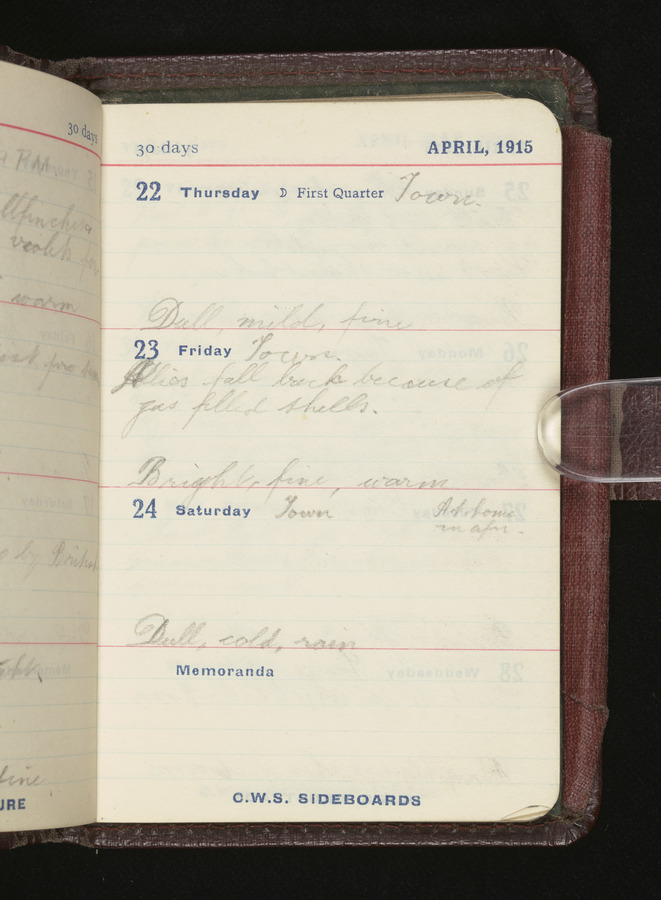 30 days
warm
URE
30 days APRIL, 1915
22 Thursday ☽ First Quarter Town.
Dull, mild, fine
23 Friday Town.
Allies fall back because of
gas filled shells.
Bright, fine, warm
24 Saturday Town At home
in aftn.
Dull, cold, rain
Memoranda
C.W.S. SIDEBOARDS